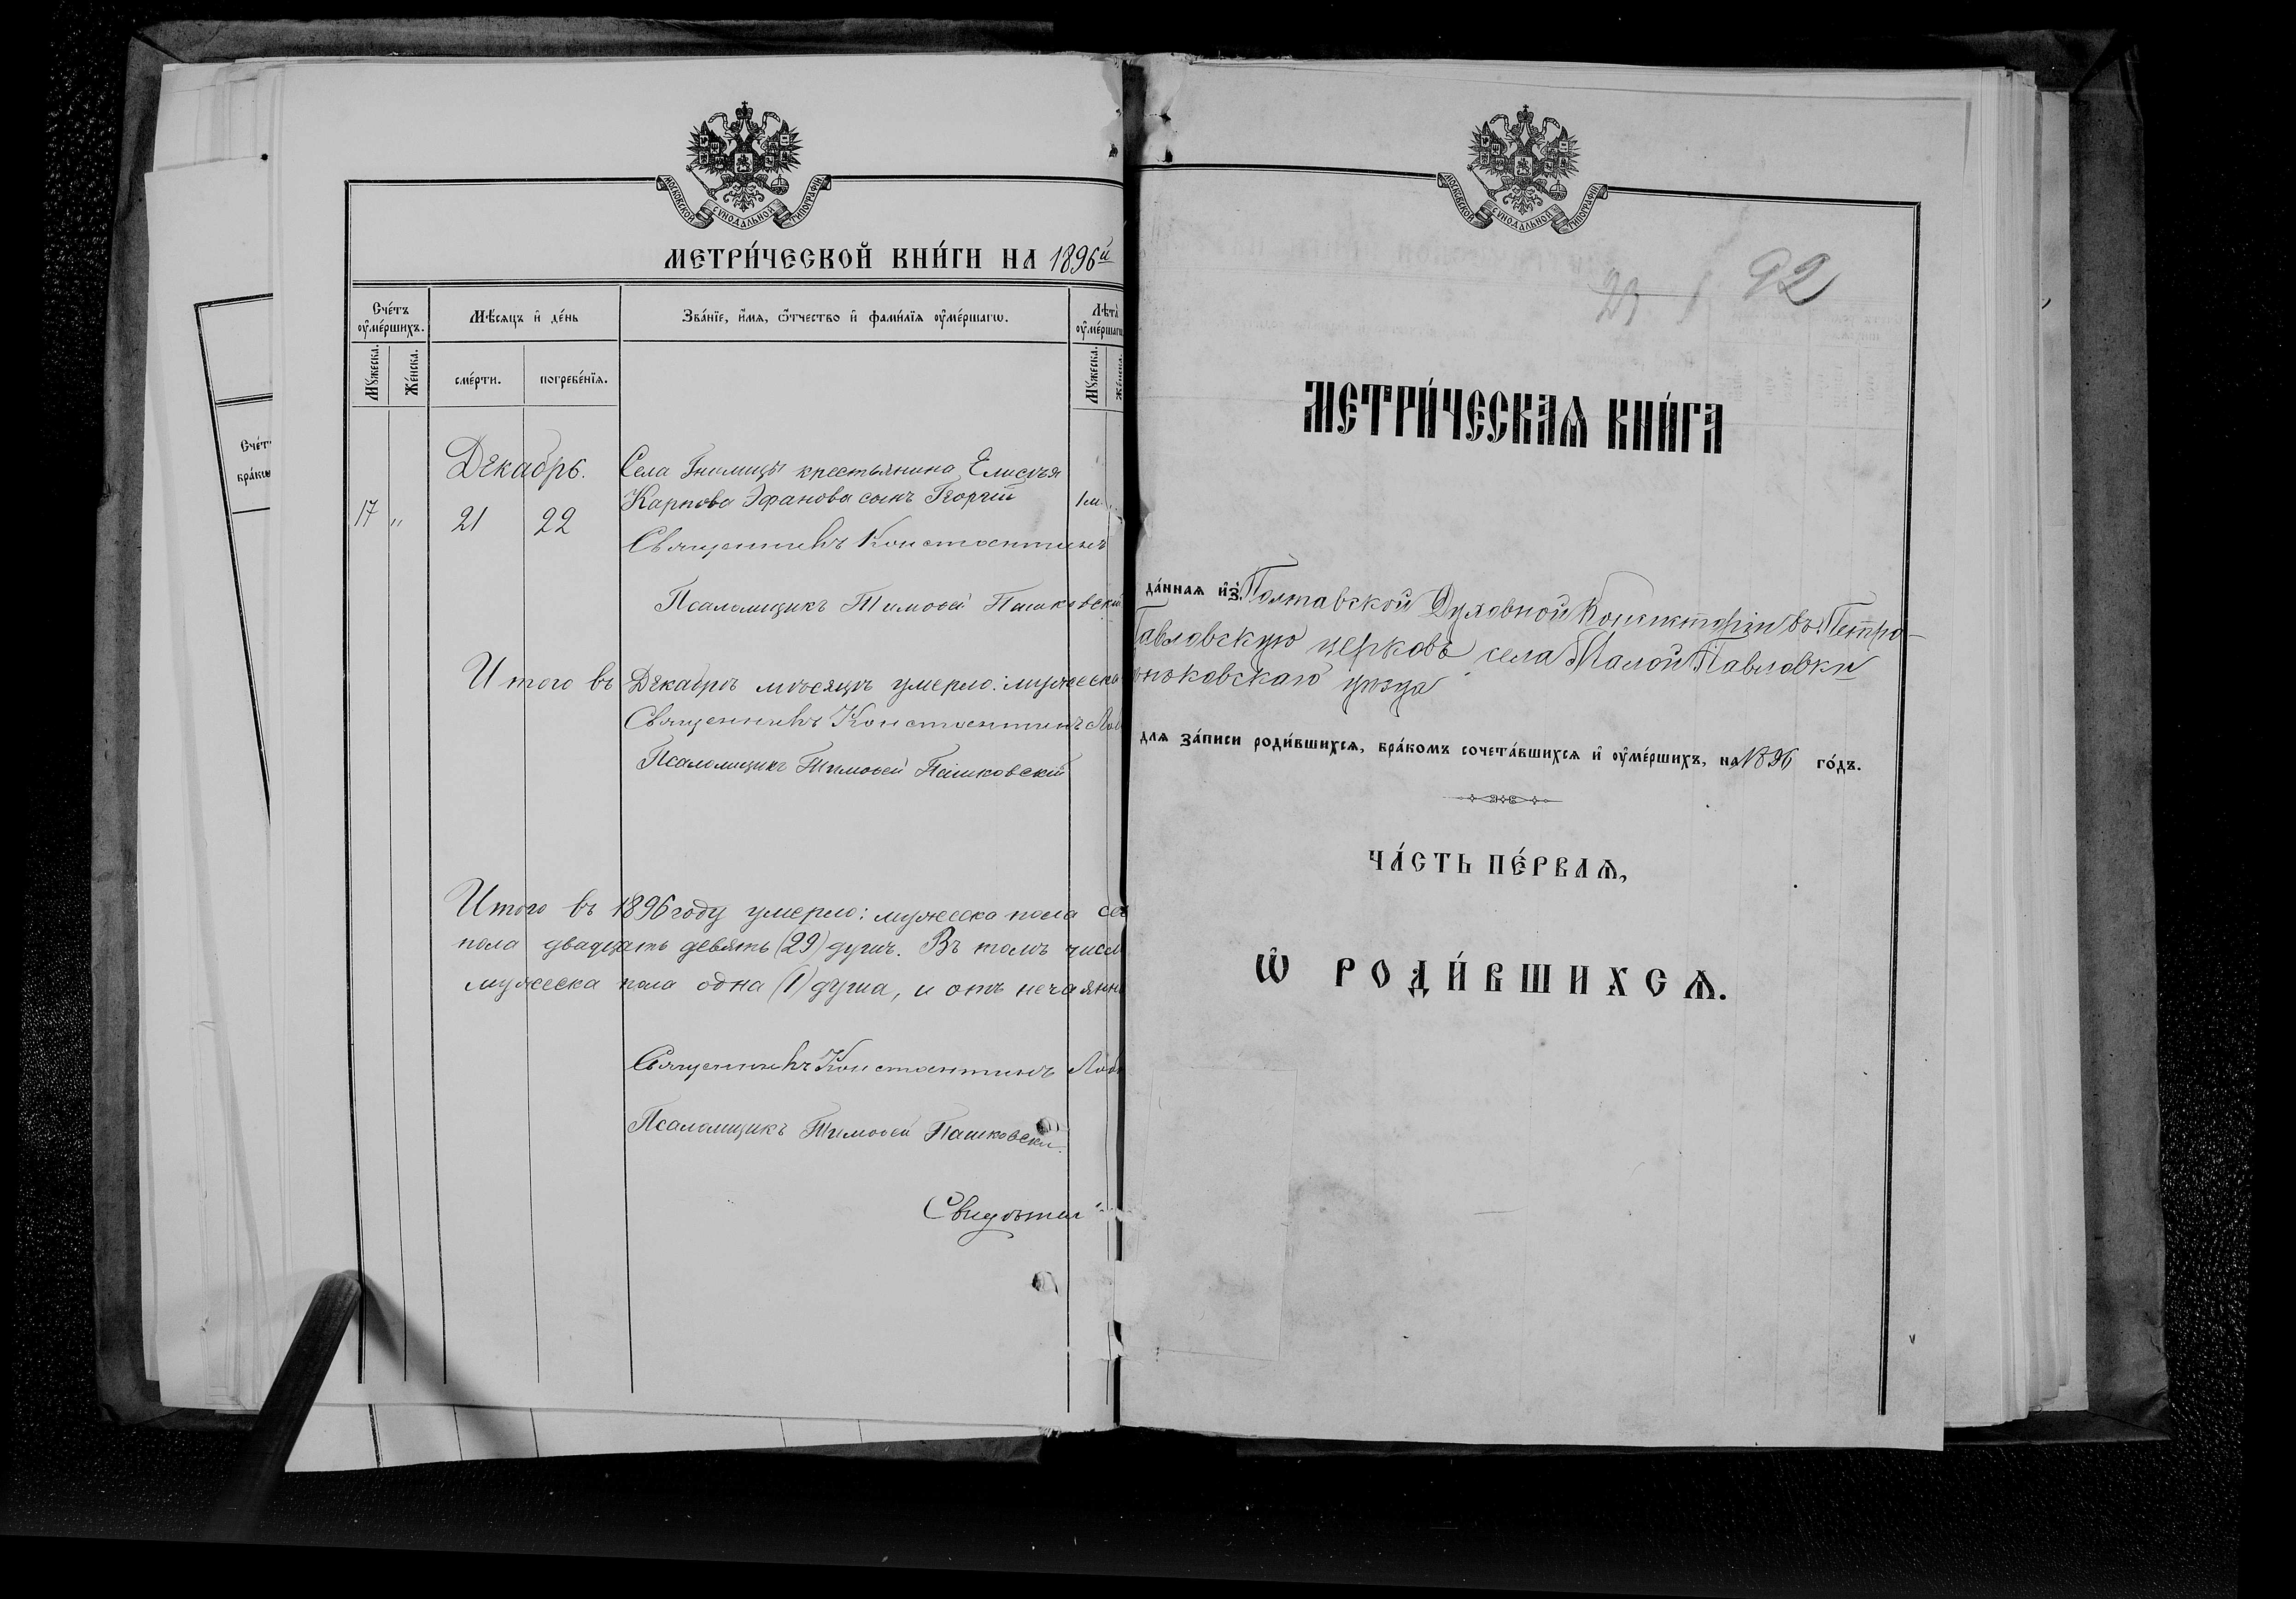 МОСКОВСКОЙ СѴНОДАЛЬНОЙ ТИПОГРАФІИ
МЕТРИ́ЧЕСКОЙ КНИ́ГИ НА 1896й
Сче́тъ оу҆ме́ршихъ.
Мѣ́сяцъ и҆ де́нь
Зва́нїе, и҆́мѧ, ѻ҆́тчество и҆ фами́лїѧ оу҆ме́ршагѡ.
Лѣ́та оу҆ме́ршагѡ
Мꙋ́жеска.
Же́нска.
сме́рти.
погребе́нїѧ.
Мꙋ́жеска.
Же́нска.
Декабрь.
Села Гнилицы крестьянина Елисѣя
17 " 21 22 Карпова Эфанова сынъ Георгій 1м
Священникъ Константинъ
Псаломщикъ Тимоѳей Пашковскій
Итого въ Декабрѣ мѣсяцѣ умерло: мужеска
Священникъ Константинъ
Псаломщикъ Тимоѳей Пашковскій
Итого въ 1896 году умерло: мужеска пола
пола двадцать девять (29) душъ. Въ томъ числѣ
мужеска пола одна (1) душа, и отъ
Священникъ Константинъ
Псаломщикъ Тимоѳей Пашковскій
Счетъ
бра́ко
МОСКОВСКОЙ СѴНОДАЛЬНОЙ ТИПОГРАФІИ
29
92
МЕТРИ́ЧЕСКАѦ КНИ́ГА
да́ннаѧ и҆з̾ Полтавской Духовной Консисторіи въ Петро-
Павловскую церковь села Малой Павловки
уѣзда
длѧ за́писи роди́вшихсѧ, бра́комъ сочета́вшихсѧ и҆ оу҆ме́ршихъ, на 1896 го́дъ.
ЧА́СТЬ ПЕ́РВАѦ,
Ѡ҆ РОДИ́ВШИХСѦ.